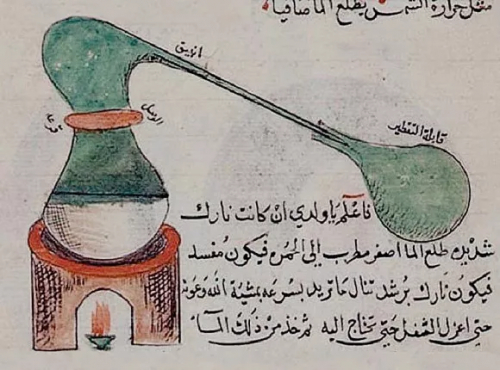 مثل حرارة الشمس يطلع الما صافيا
الانبيق
قرعة
قابلة التقطير
فاعلم يا ولدي ان كانت نارك
شديده طلع الما اصفر مطرب الى الحمره فيكون مفسد
فيكون نارك برشد تنال ما تريد بسرعه بمشية الله وعونه
حتى اعزل الثفل حتى تحتاج اليه ثم خذ من ذلك المآ